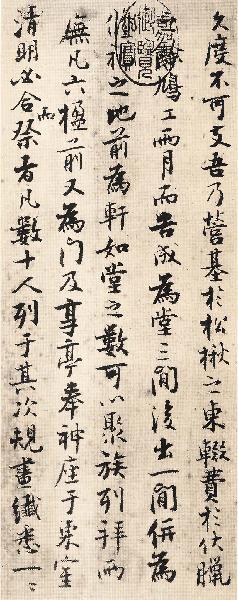 久度不可支吾乃營基於松楸之東輟費於伏臘
鳩工兩月而告成為堂三間後出一間併為
祀之地前為軒如堂之數可以聚族列拜兩
廡凡六楹前又為門及享亭奉神座于東室
清明必而合祭者凡數十人列于其次規畫纖悉一一